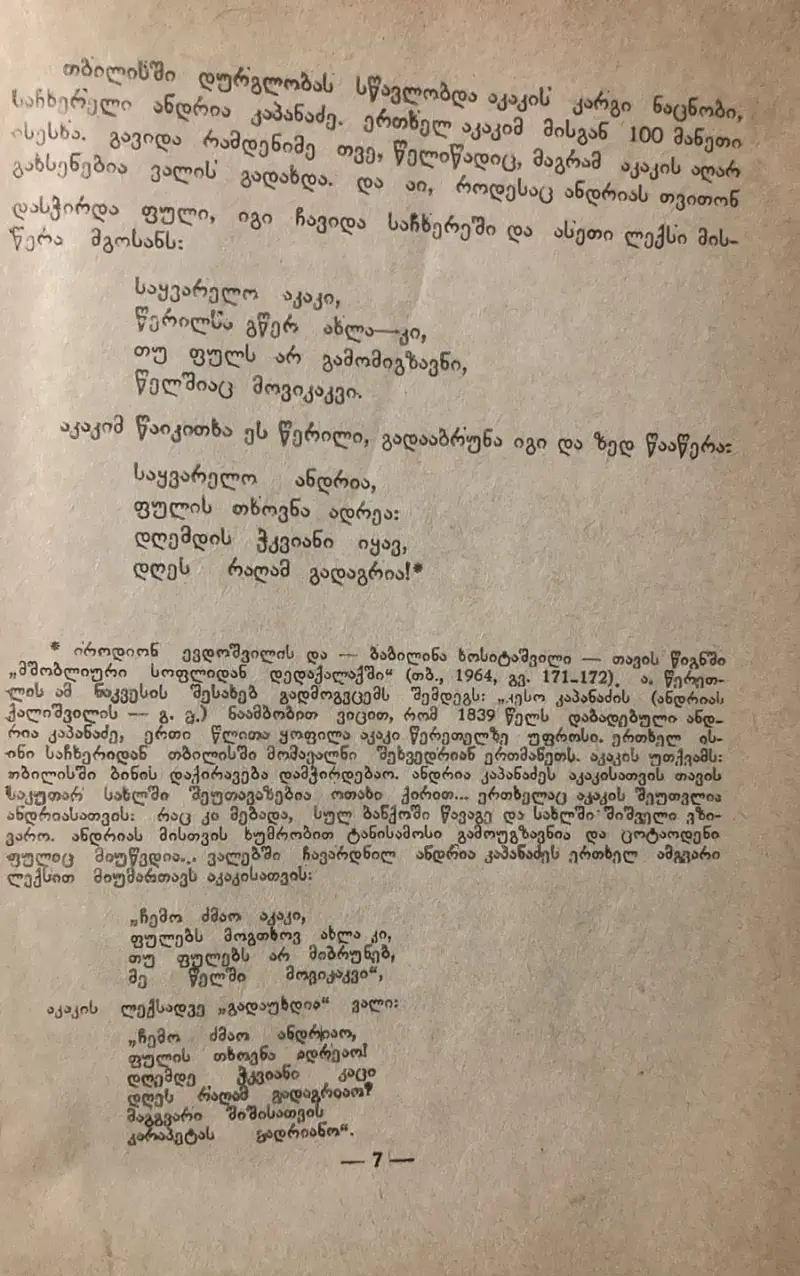 თბილისში დურგლობას სწავლობდა აკაკის კარგი ნაცნობი,
საჩხერელი ანდრია კაპანაძე. ერთხელ აკაკიმ მისგან 100 მანეთი
ისესხა. გავიდა რამდენიმე თვე, წელიწადიც, მაგრამ აკაკის აღარ
გახსენებია ვალის გადახდა. და აი, როდესაც ანდრიას თვითონ
დასჭირდა ფული, იგი ჩავიდა საჩხერეში და ასეთი ლექსი მის-
წერა მგოსანს:
საყვარელო აკაკი,
წერილსა გწერ ახლა—კი,
თუ ფულს არ გამომიგზავნი,
წელშიაც მოვიკაკვი.
აკაკიმ წაიკითხა ეს წერილი, გადააბრუნა იგი და ზედ წააწერა:
საყვარელო ანდრია,
ფულის თხოვნა ადრეა:
დღემდის ჭკვიანი იყავ,
დღეს რაღამ გადაგრია!*
* იროდიონ ევდოშვილის და — ბაბილინა ხოსიტაშვილი — თავის წიგნში
„მშობლიური სოფლიდან დედაქალაქში“ (თბ., 1964, გვ. 171-172). ა. წერეთ-
ლის ამ ნაკვესის შესახებ გადმოგვცემს შემდეგს: „კესო კაპანაძის (ანდრიას
ქალიშვილის — გ. გ.) ნაამბობით ვიცით, რომ 1839 წელს დაბადებული ანდ-
რია კაპანაძე, ერთი წლითა ყოფილა აკაკი წერეთელზე უფროსი. ერთხელ ის-
ინი საჩხერიდან თბილისში მომავალნი შეხვედრიან ერთმანეთს. აკაკის უთქვამს:
თბილისში ბინის დაქირავება დამჭირდებაო. ანდრია კაპანაძეს აკაკისათვის თავის
საკუთარ სახლში შეუთავაზებია ოთახი ქირით... ერთხელაც აკაკის შეუთვლია
ანდრიასათვის: რაც კი მებადა, სულ ბანქოში წავაგე და სახლში შიშველი ვზი-
ვარო. ანდრიას მისთვის ხუმრობით ტანისამოსი გამოუგზავნია და ცოტაოდენი
ფულიც მიუწვდია... ვალებში ჩავარდნილ ანდრია კაპანაძეს ერთხელ ამგვარი
ლექსით მიუმართავს აკაკისათვის:
„ჩემო ძმაო აკაკი,
ფულებს მოგთხოვ ახლა კი,
თუ ფულებს არ მიბრუნებ,
მე წელში მოვიკაკვი“,
აკაკის ლექსადვე „გადაუხდია“ ვალი:
„ჩემო ძმაო ანდრიაო,
ფულის თხოვნა ადრეაო!
დღემდე ჭკვიანი კაცი
დღეს რაღამ გადაგრიაო?
მაგგვარი შიშისათვის
კარაპეტას ყადრიანო“.
— 7 —